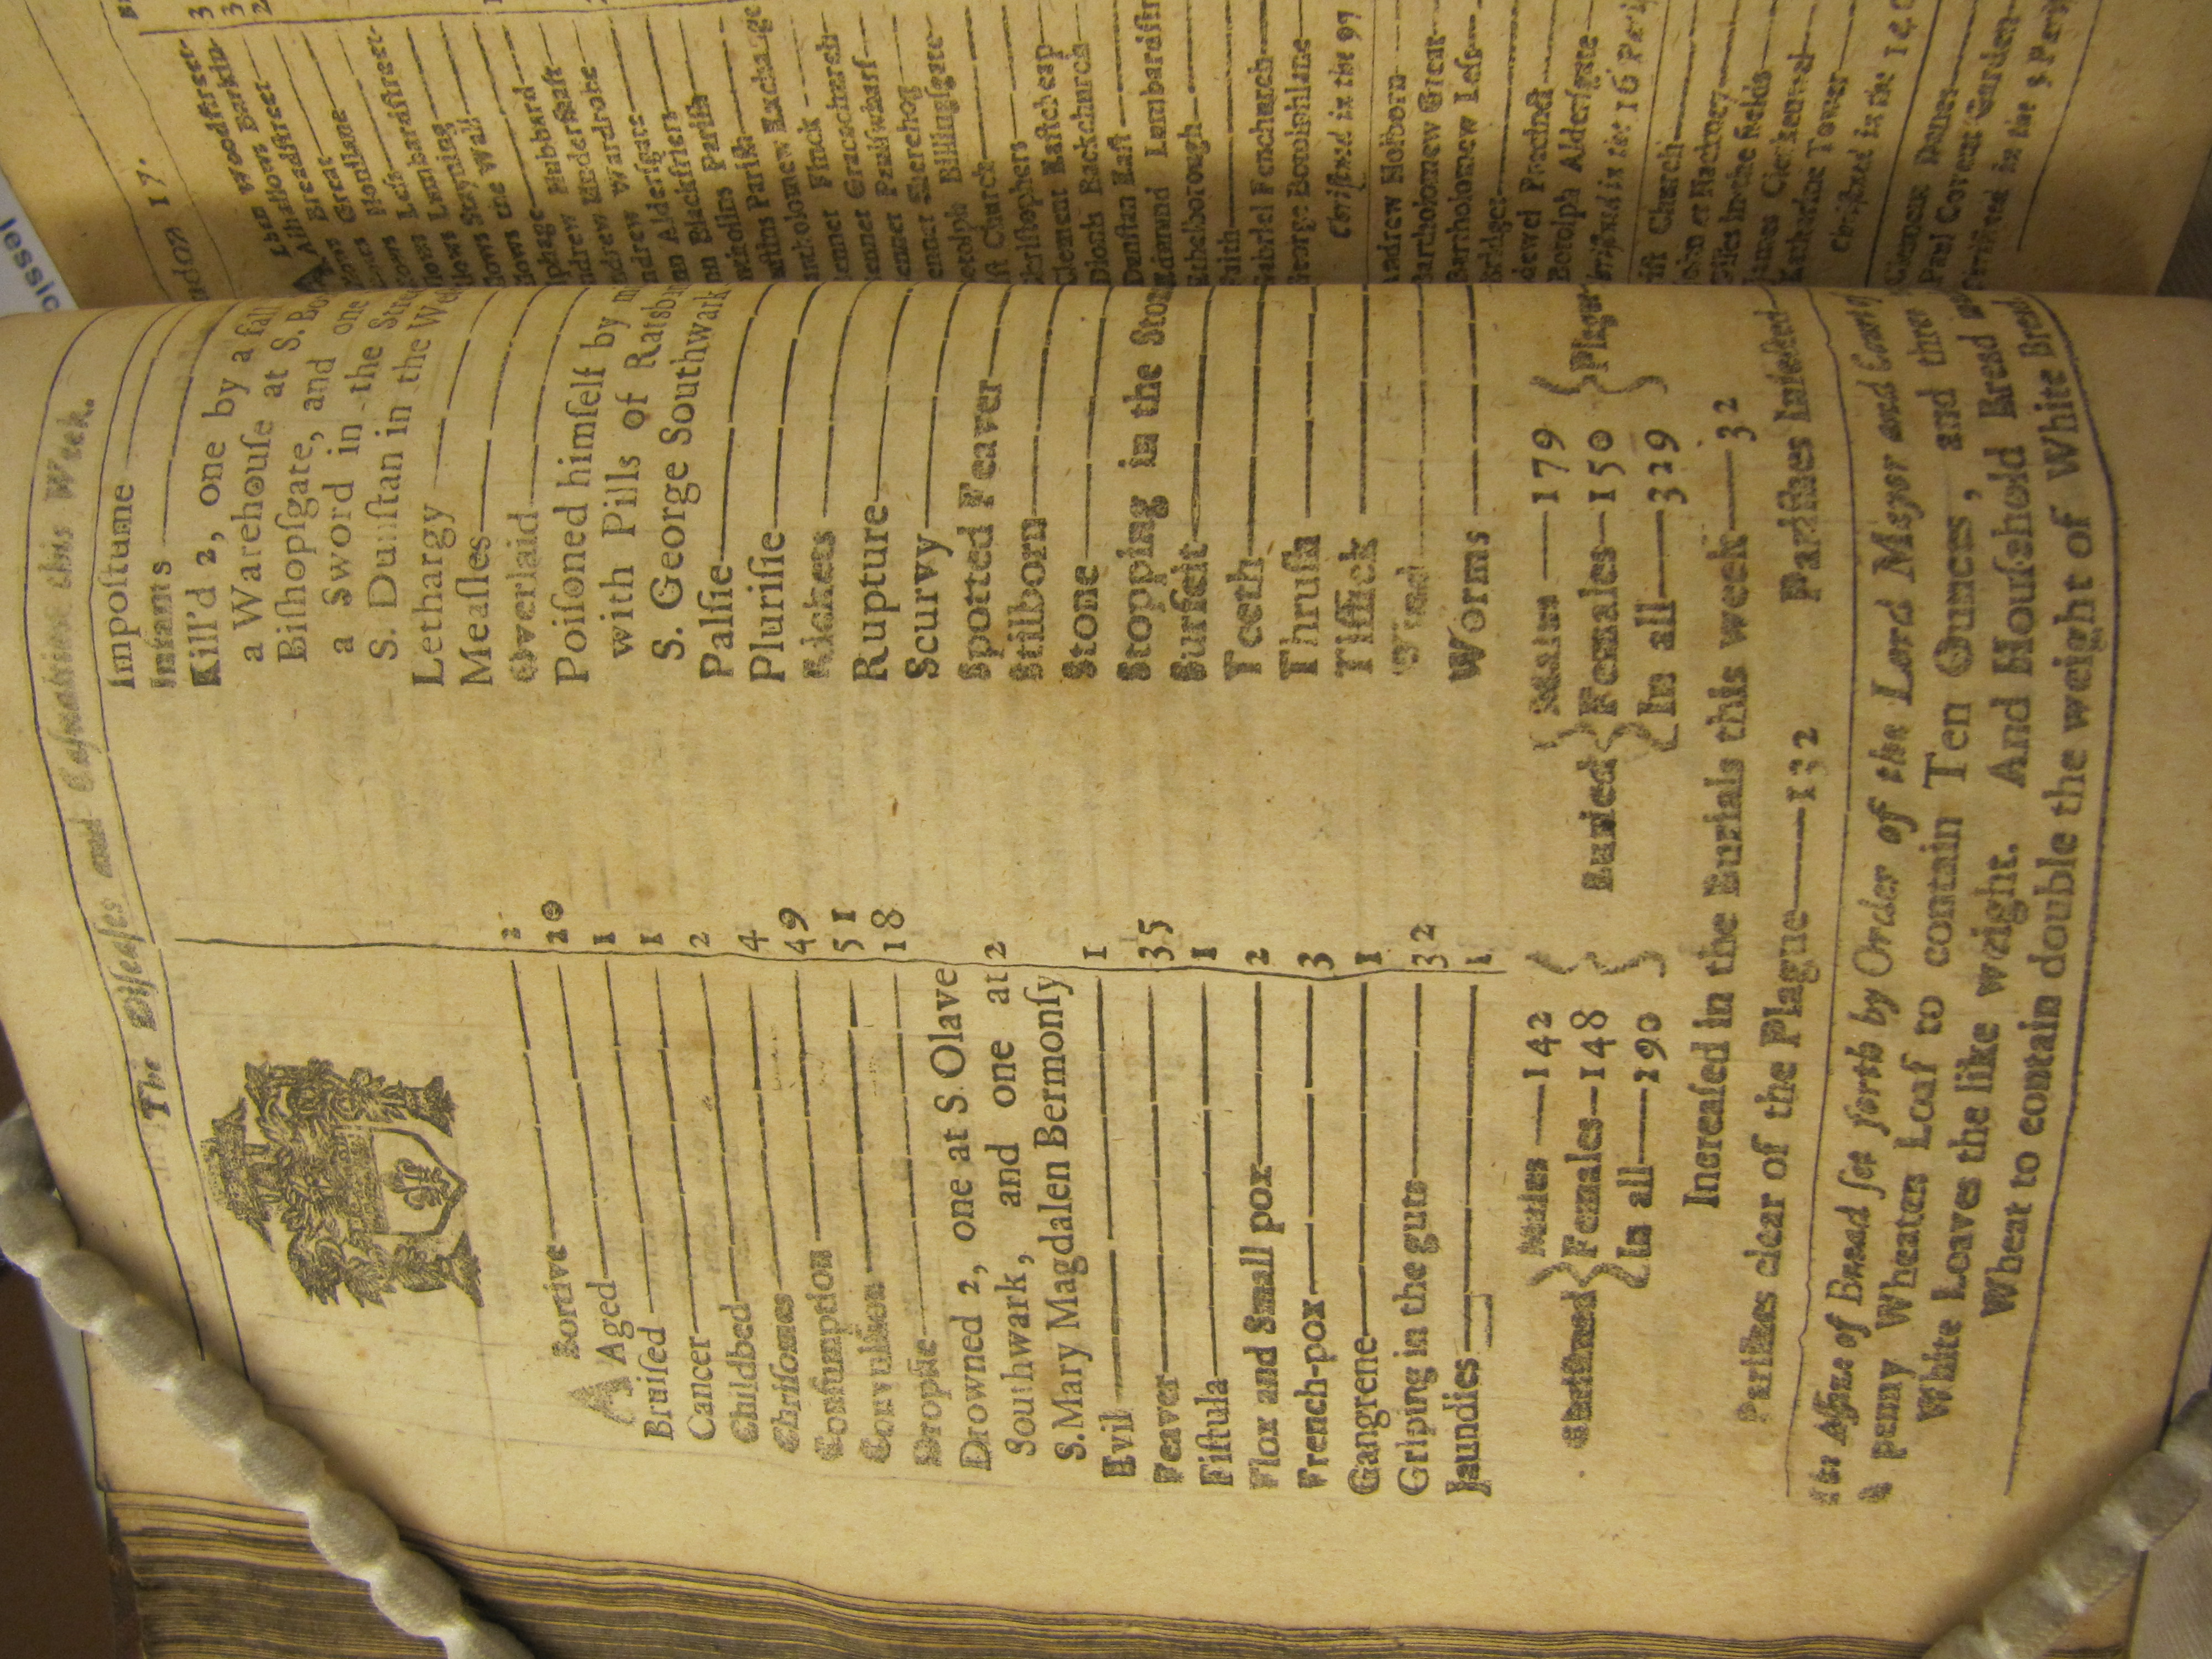 The Diseases and Casualties this Week.
Abortive 2
Aged 20
Bruiſed 1
Cancer 1
Childbed 2
Chriſomes 4
Conſumption 49
Convulſion 51
Dropſie 18
Drowned 2, one at S. Olave
Southwark, and one at 2
S. Mary Magdalen Bermonſy
Evil 1
Feaver 35
Fiſtula 1
Flox and Small pox 2
French-pox 3
Gangrene 1
Griping in the guts 32
Jaundies 1
Impoſtume
Infants
Kill'd 2, one by a fall
a Warehouſe at S. Bo
Biſhopſgate, and one
a Sword in the Stre
S. Dunſtan in the We
Lethargy
Meaſles
Overlaid
Poiſoned himſelf by
with Pills of Ratsb
S. George Southwark
Palſie
Pluriſie
Rickets
Rupture
Scurvy
Spotted Feaver
Stilborn
Stone
Stopping in the Stom
Surfeit
Teeth
Thruſh
Tiſſick
Wind
Worms
Chriſtned { Males 142
Females 148
In all 290 }
Buried { Males 179
Females 150
In all 329 } Plague
Increaſed in the Burials this week 32
Pariſhes clear of the Plague 132 Pariſhes Infected
The Aſſize of Bread ſet forth by Order of the Lord Mayor and Court of
A penny Wheaten Loaf to contain Ten Ounces, and three
White Loaves the like weight. And Houſhold Bread
Wheat to contain double the weight of White Bread
ndon 17.
Alban Woodſtreet 3
Alhallows Barkin 3
Alhallows Breadſtreet 2
lows Great
lows Honilane
lows Leſs
lows Lombardſtreet
lows Stayning
lows the Wall
lphage
ndrew Hubbard
ndrew Underſhaft
ndrew Wardrobe
nn Alderſgate
nn Blackfriers
ntholins Pariſh
uſtins Pariſh
artholomew Exchange
ennet Fynck
ennet Gracechurch
ennet Paulſwharf
ennet Sherehog
otolph Billingſgate
iſt Church
hriſtophers
Clement Eaſtcheap
Dionis Backchurch
Dunſtan Eaſt
Edmund Lombardſtr
Ethelborough
Faith
Gabriel Fenchurch
George Botolphlane
Chriſtned in the 97
Andrew Holborn
Bartholomew Great
Bartholomew Leſs
Bridget
dewel Precinct
Botolph Alderſgate
hriſtned in the 16 Pari
riſt Church
John at Hackney
Giles in the fields
James Clerkenwel
Katharine Tower
Chriſtned in the 14
Clement Danes
Paul Covent Garden
hriſtned in the 5 Pari
leſſic